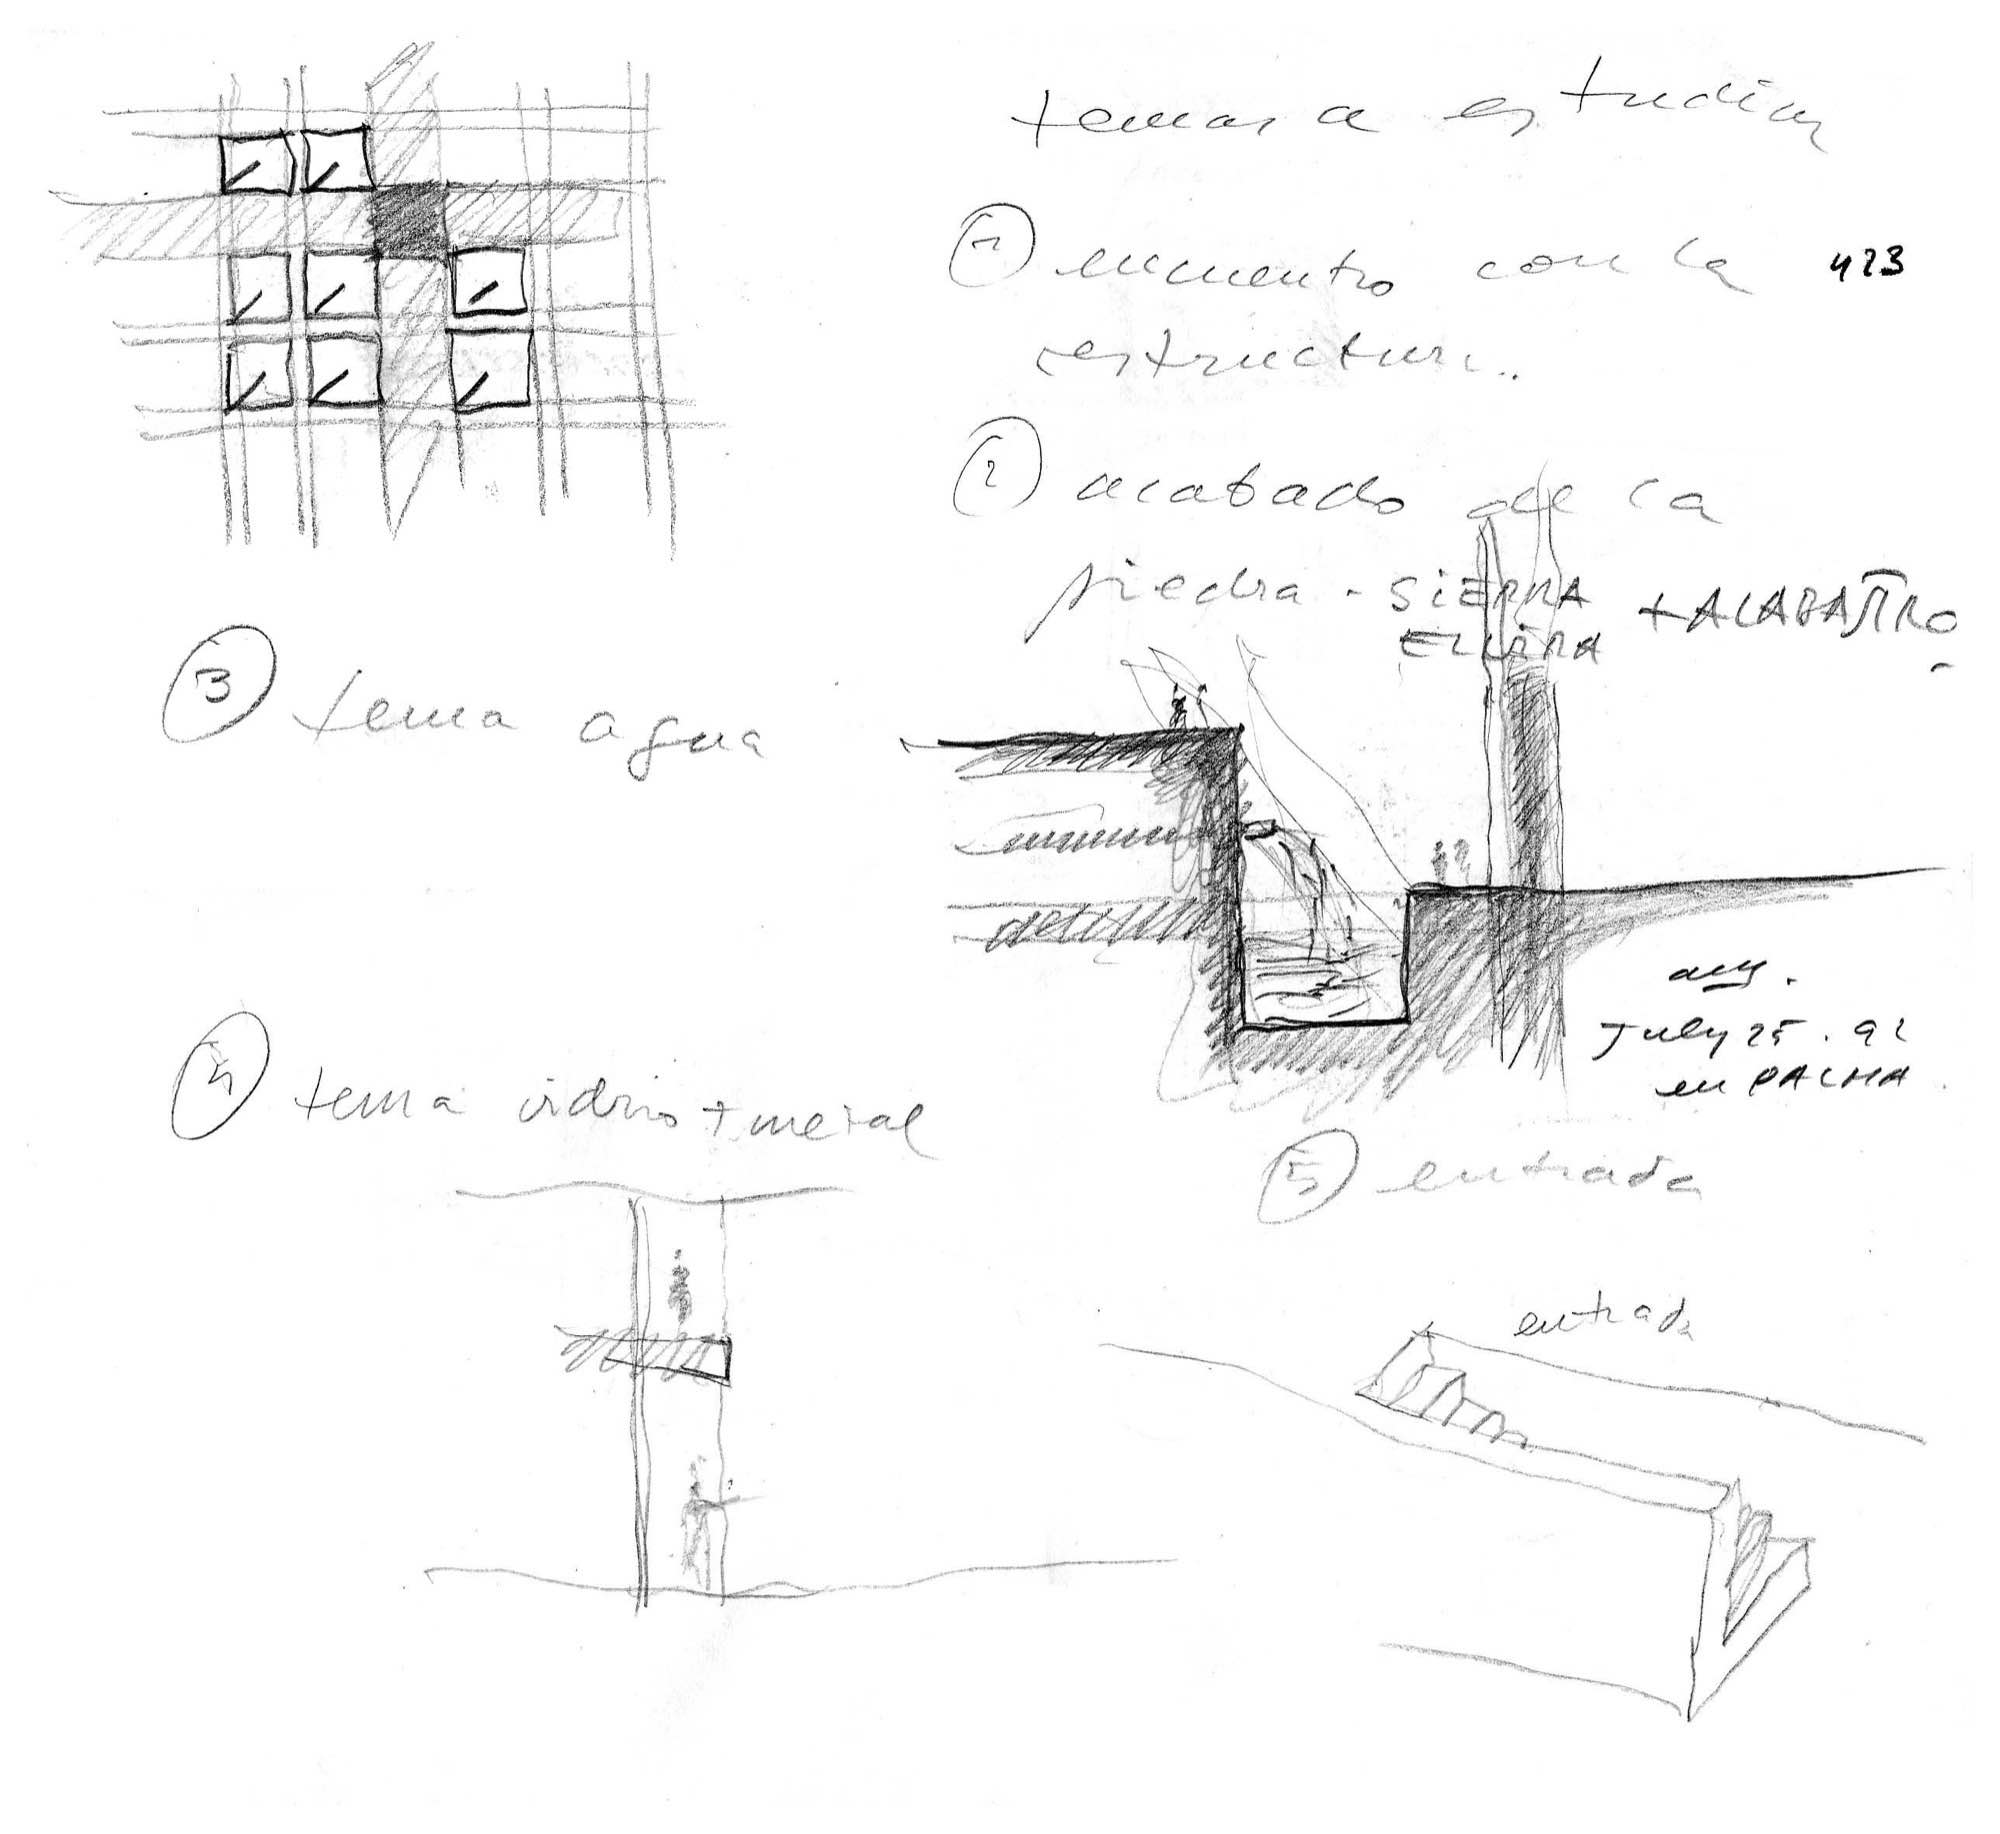 temas a estudiar
1 encuentro con la 423
estructura..
2 acabado de la
piedra - SiERRA + ALABASTRO
ELVIRA
3 tema agua
July 25 . 92
en PALMA
4 tema vidrio + metal
5 entrada
entrada